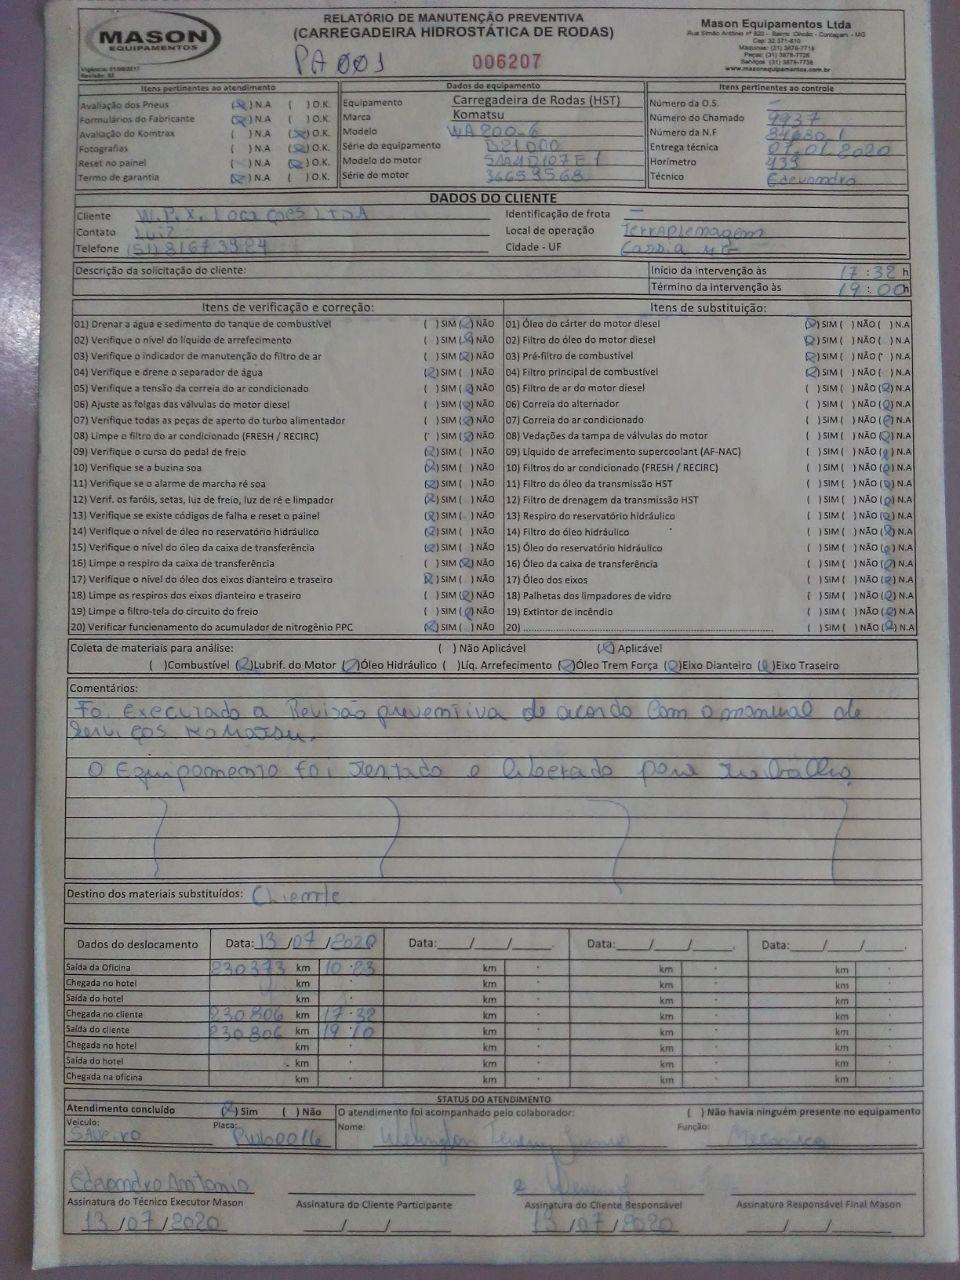 MASON
EQUIPAMENTOS
Vigência: 01/08/2017
Revisão: 02
RELATÓRIO DE MANUTENÇÃO PREVENTIVA
(CARREGADEIRA HIDROSTÁTICA DE RODAS)
PA001
006207
Mason Equipamentos Ltda
www.masonequipamentos.com.br
Itens pertinentes ao atendimento
Avaliação dos Pneus (X) N.A ( ) O.K.
Formulários do Fabricante (X) N.A ( ) O.K.
Avaliação do Komtrax ( ) N.A (X) O.K.
Fotografias ( ) N.A (X) O.K.
Reset no painel ( ) N.A (X) O.K.
Termo de garantia (X) N.A ( ) O.K.
Dados do equipamento
Equipamento Carregadeira de Rodas (HST)
Marca Komatsu
Modelo WA200-6
Série do equipamento B21000
Modelo do motor SAA4D107E1
Série do motor 36659568
Itens pertinentes ao controle
Número da O.S. —
Número do Chamado 9937
Número da N.F
Entrega técnica
Horímetro 439
Técnico Edevandro
DADOS DO CLIENTE
Cliente W.P.X. Locações LTDA
Contato Luiz
Telefone
Identificação de frota —
Local de operação Terraplenagem
Cidade - UF Cassia MG
Descrição da solicitação do cliente:
Início da intervenção às 17:32 h
Término da intervenção às 19:00 h
Itens de verificação e correção:
01) Drenar a água e sedimento do tanque de combustível ( ) SIM (X) NÃO
02) Verifique o nível do líquido de arrefecimento ( ) SIM (X) NÃO
03) Verifique o indicador de manutenção do filtro de ar ( ) SIM (X) NÃO
04) Verifique e drene o separador de água (X) SIM ( ) NÃO
05) Verifique a tensão da correia do ar condicionado ( ) SIM (X) NÃO
06) Ajuste as folgas das válvulas do motor diesel ( ) SIM (X) NÃO
07) Verifique todas as peças de aperto do turbo alimentador ( ) SIM (X) NÃO
08) Limpe o filtro do ar condicionado (FRESH / RECIRC) ( ) SIM (X) NÃO
09) Verifique o curso do pedal de freio (X) SIM ( ) NÃO
10) Verifique se a buzina soa (X) SIM ( ) NÃO
11) Verifique se o alarme de marcha ré soa (X) SIM ( ) NÃO
12) Verif. os faróis, setas, luz de freio, luz de ré e limpador (X) SIM ( ) NÃO
13) Verifique se existe códigos de falha e reset o painel (X) SIM ( ) NÃO
14) Verifique o nível de óleo no reservatório hidráulico (X) SIM ( ) NÃO
15) Verifique o nível do óleo da caixa de transferência (X) SIM ( ) NÃO
16) Limpe o respiro da caixa de transferência ( ) SIM (X) NÃO
17) Verifique o nível do óleo dos eixos dianteiro e traseiro (X) SIM ( ) NÃO
18) Limpe os respiros dos eixos dianteiro e traseiro ( ) SIM (X) NÃO
19) Limpe o filtro-tela do circuito do freio ( ) SIM (X) NÃO
20) Verificar funcionamento do acumulador de nitrogênio PPC (X) SIM ( ) NÃO
Itens de substituição:
01) Óleo do cárter do motor diesel (X) SIM ( ) NÃO ( ) N.A
02) Filtro do óleo do motor diesel (X) SIM ( ) NÃO ( ) N.A
03) Pré-filtro de combustível (X) SIM ( ) NÃO ( ) N.A
04) Filtro principal de combustível (X) SIM ( ) NÃO ( ) N.A
05) Filtro de ar do motor diesel ( ) SIM ( ) NÃO (X) N.A
06) Correia do alternador ( ) SIM ( ) NÃO (X) N.A
07) Correia do ar condicionado ( ) SIM ( ) NÃO (X) N.A
08) Vedações da tampa de válvulas do motor ( ) SIM ( ) NÃO (X) N.A
09) Líquido de arrefecimento supercoolant (AF-NAC) ( ) SIM ( ) NÃO (X) N.A
10) Filtros do ar condicionado (FRESH / RECIRC) ( ) SIM ( ) NÃO (X) N.A
11) Filtro do óleo da transmissão HST ( ) SIM ( ) NÃO (X) N.A
12) Filtro de drenagem da transmissão HST ( ) SIM ( ) NÃO (X) N.A
13) Respiro do reservatório hidráulico ( ) SIM ( ) NÃO (X) N.A
14) Filtro do óleo hidráulico ( ) SIM ( ) NÃO (X) N.A
15) Óleo do reservatório hidráulico ( ) SIM ( ) NÃO (X) N.A
16) Óleo da caixa de transferência ( ) SIM ( ) NÃO (X) N.A
17) Óleo dos eixos ( ) SIM ( ) NÃO (X) N.A
18) Palhetas dos limpadores de vidro ( ) SIM ( ) NÃO (X) N.A
19) Extintor de incêndio ( ) SIM ( ) NÃO (X) N.A
20) ( ) SIM ( ) NÃO (X) N.A
Coleta de materiais para análise: ( ) Não Aplicável (X) Aplicável
( ) Combustível (X) Lubrif. do Motor (X) Óleo Hidráulico ( ) Líq. Arrefecimento (X) Óleo Trem Força (X) Eixo Dianteiro (X) Eixo Traseiro
Comentários:
Foi executado a Revisão preventiva de acordo com o manual de
serviços Komatsu.
O Equipamento foi testado e liberado para trabalho.
Destino dos materiais substituídos: Cliente
Dados do deslocamento Data: 13/07/2020 Data: / / . Data: / / . Data: / / .
Saída da Oficina 230373 km 10:23 km km km
Chegada no hotel km km km km
Saída do hotel km km km km
Chegada no cliente 230806 km 17:32 km km km
Saída do cliente 230806 km 19:10 km km km
Chegada no hotel km km km km
Saída do hotel km km km km
Chegada na oficina km km km km
STATUS DO ATENDIMENTO
Atendimento concluído (X) Sim ( ) Não
O atendimento foi acompanhado pelo colaborador: ( ) Não havia ninguém presente no equipamento
Veículo: SAVEIRO Placa:
Nome: Função: Mecanico
Edevandro Antonio
Assinatura do Técnico Executor Mason
Assinatura do Cliente Participante
Assinatura do Cliente Responsável
Assinatura Responsável Final Mason
13/07/2020 / / 13/07/2020 / /